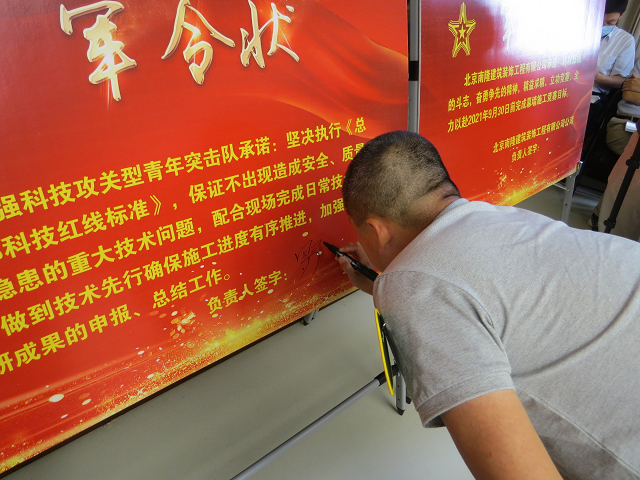 军令状
强科技攻关型青年突击队承诺：坚决执行《总
科技红线标准》，保证不出现造成安全、质量
急患的重大技术问题，配合现场完成日常技
做到技术先行确保施工进度有序推进，加强
研成果的申报、总结工作。
负责人签字：
北京南隆建筑装饰工程有限公司
的斗志，奋勇争先的精神，精益求精、立功竞赛，全
力以赴2021年9月30日前完成幕墙施工竞赛目标。
北京南隆建筑装饰工程有限公司
负责人签字：